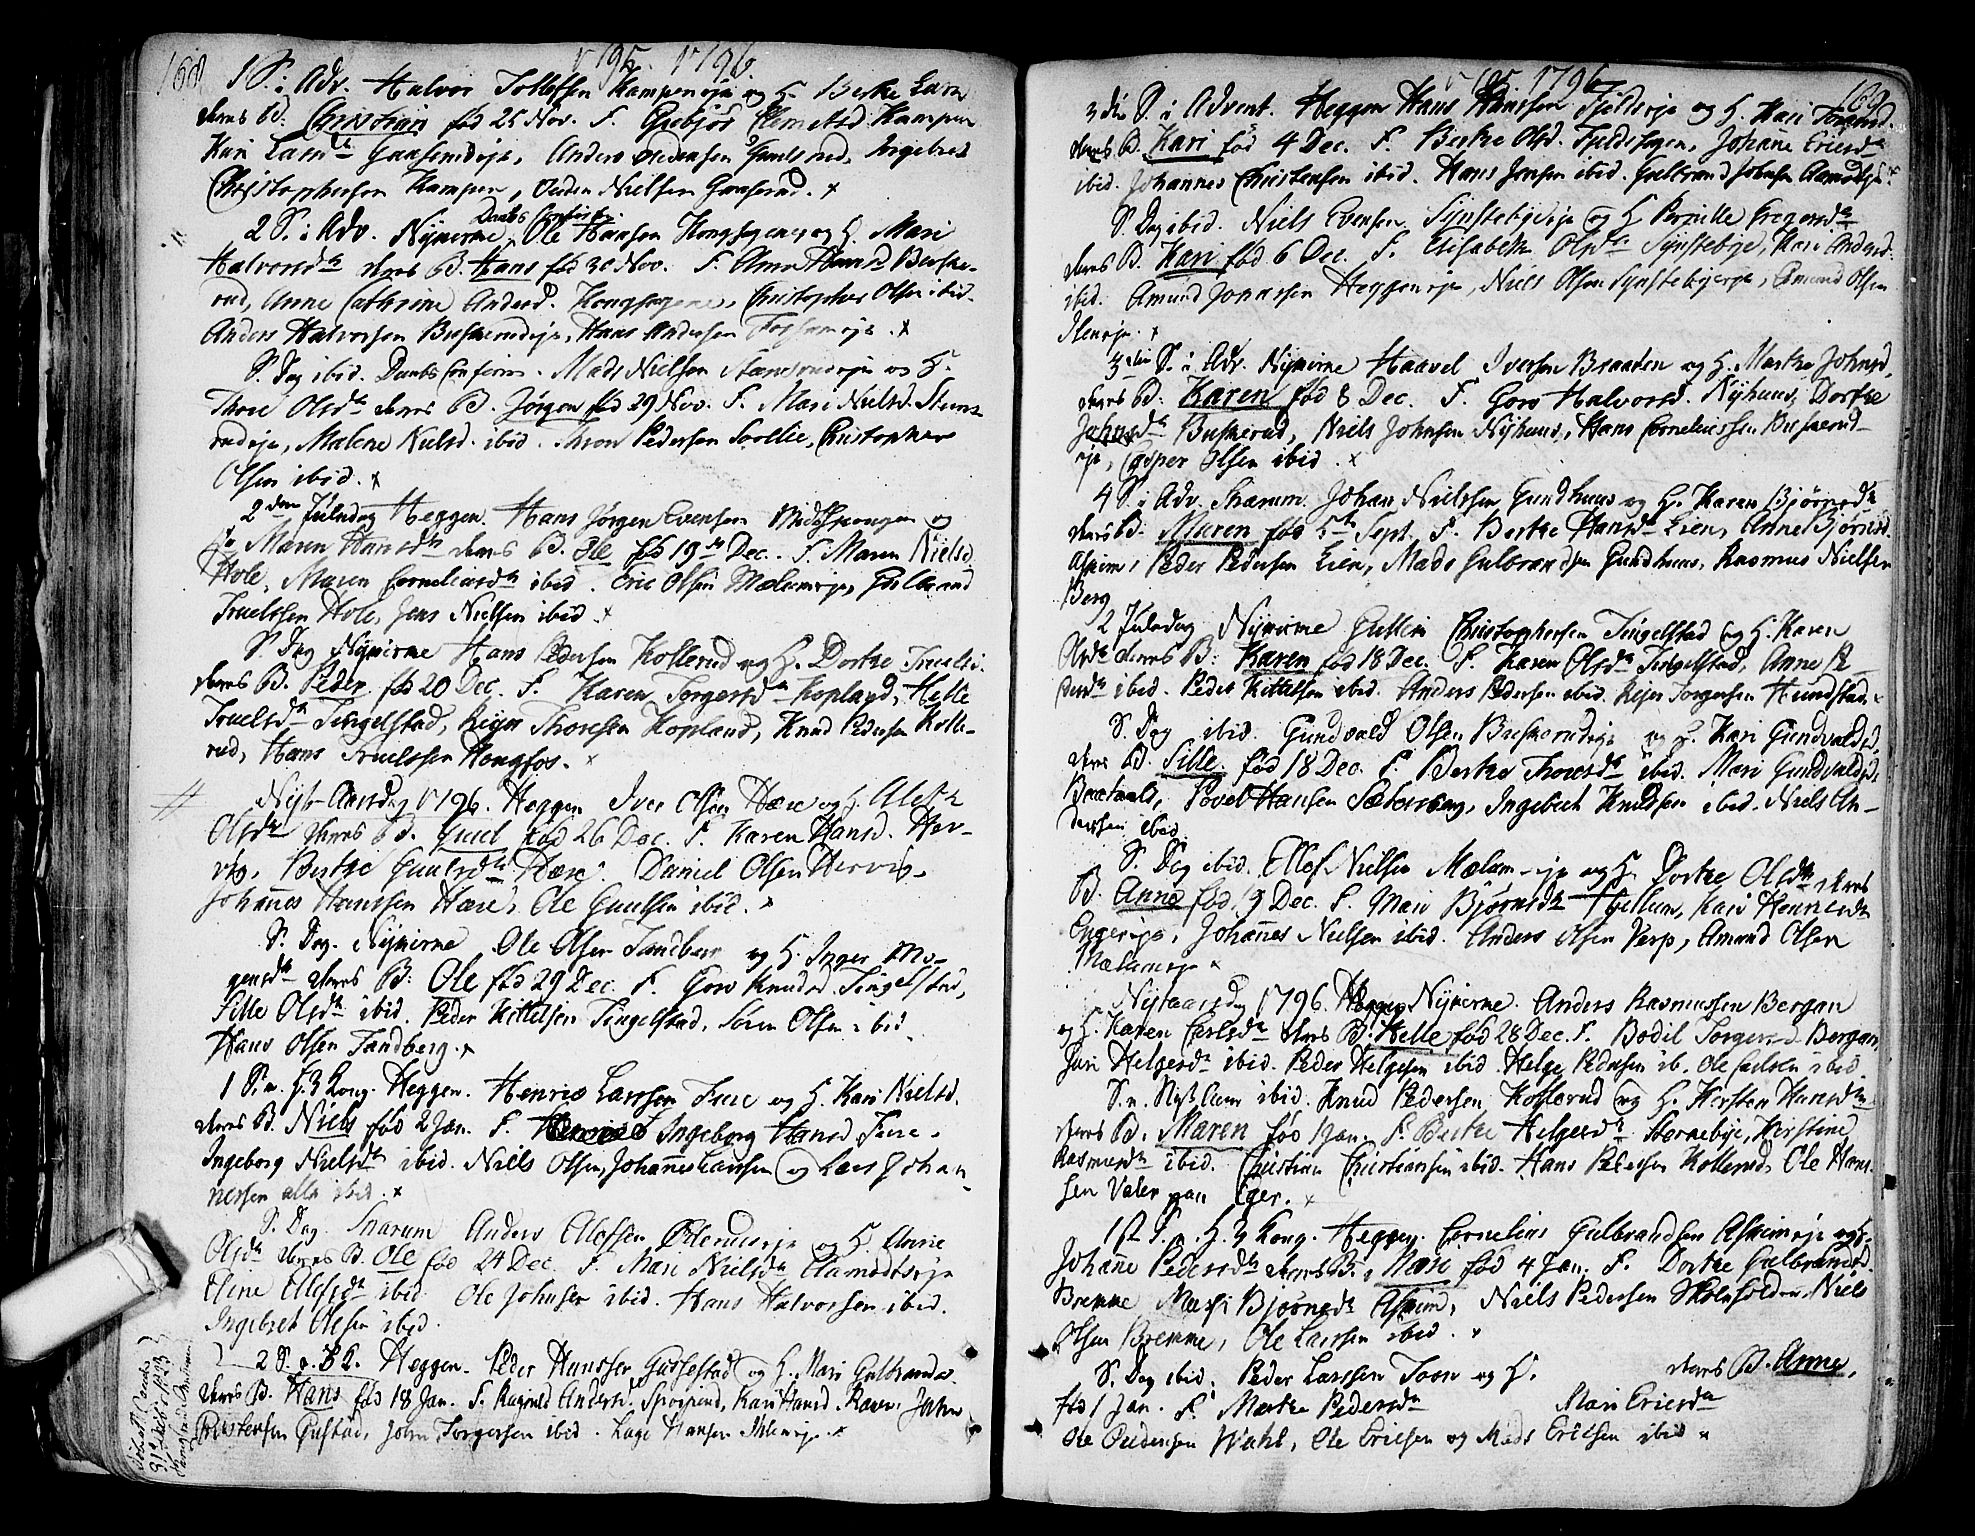 168
1795. 1796
1 S. i Adv. Halvor Tollefsen Kampeneje og H. Berthe Lars
deres B. Christian fød 25 Nov. F. Giebjør Clemetsd. Kampen
Kari Larsdr Gaaserudeje, Anders Pedersen Gaaserud, Ingebret
Christophersen Kampen, Peder Nielsen Gaaserud. x
Daabs Confirm.
2 S. i Adv. Nykirne Ole Hansen Kongsgene og H. Mari
Halvorsdr deres B. Hans fød 30 Nov. F. Anne Hansd Buske-
rud, Anne Cathrine Andersd. Kongsgene, Christopher Olsen ibid.
Anders Halvorsen Buskerudeje, Hans Andersen Fossumeje. x
S. Dag ibid. Daabs Confirm. Mads Nielsen Stensrudeje og H.
Thore Olsdr deres B. Jørgen fød 29 Nov. F. Mari Nielsd. Stens-
rudeje, Malene Nielsd. ibid. Thron Pedersen Soellie, Christopher
Olsen ibid. x
2den Juledag Heggen. Hans Jørgen Evensen Midtspongen og
H. Maren Hansdr deres B. Ole fød 19de Dec. F. Maren Nielsd
Hole, Maren Corneliusdr ibid. Eric Olsen Mælumeje, Gulbrand
Truelssen Hole, Jens Nielsen ibid. x
S. Dag Nykirne Hans Pedersen Kollerud og H. Dorthe Truelsd.
deres B. Peder fød 20 Dec. F. Karen Torgersdr Kopland, Helle
Truelsdr Tingelstad, Reyer Thoresen Kopland, Knud Pedersen Kolle-
rud, Hans Truelssen Hongfos. x
Nyt-Aarsdag 1796. Heggen Iver Olsen Hære og H. Aleth
Olsdr deres B. Guul fød 26 Dec. F. Karen Hansd. Her-
vig, Berthe Guulsdr Hære. Daniel Olsen Hervig.
Johannes Hanssen Hære, Ole Guulsen ibid. x
S. Dag. Nykirne Ole Olsen Sandberg og H. Inger Mo-
gensdr deres B. Ole fød 29 Dec. F. Goro Knudsd. Tingelstad,
Sille Olsdr ibid. Peder Kittelsen Tingelstad, Søren Olsen ibid.
Hans Olsen Sandberg. x
1 S. e. H. 3 Kong. Heggen. Henric Larssen Fure og H. Kari Nielsd.
deres B. Niels fød 2 Jan. F. Ingeborg Hansd Fure.
Ingeborg Nielsdr ibid. Niels Olsen, Johannes Larssen og Lars Johan-
nessen alle ibid. x
S. Dag. Snarum Anders Olefsen eje og H. Anne
Olsdr deres B. Ole fød 24 Dec. F. Mari Nielsdr Aamodtseje
Eline Olefsdr ibid. Ole Johnsen ibid. Hans Halvorssen ibid.
Ingebret Olsen ibid.
2 S. e. H 3 K. Heggen. Peder Hanssen Gustestad og H. Mari Gulbrandsd.
deres B. Hans fød 18 Jan. F. Ragnild Andersd. Kari Hansd. John
Christensen Gustad, John Torgersen ibid. Lage Hansen x
1795. 1796
169
3die S. i Advent. Heggen Hans Hanssen Fjeldeje og H. Kari
deres B. Kari fød 4 Dec. F. Berthe Olsd. Fjeldhagen, Johanne Ericsdr
ibid. Johannes Christensen ibid. Hans Jensen ibid. Gulbrand Johnsen Aamodteje. x
S. Dag ibid. Niels Evensen Synstebyeje og H. Pernille Gregersdr
deres B. Kari fød 6 Dec. F. Elisabeth Olsdr Synstebye, Kari Andersd.
ibid. Amund Jonassen Heggeneje, Niels Olsen Synstebyeeje, Amund Olsen
Steneje. x
3die S. i Adv. Nykirne Haavel Iversen Braaten og H. Marthe Johnsd.
deres B. Karen fød 8 Dec. F. Goro Halvorsd. Nyhuus, Dorthe
Johnsdr Buskerud, Niels Johnsen Nyhuus, Hans Corneliussen Buskerud-
eje, Casper Olsen ibid. x
4 S. i Adv. Snarum. Johan Nielssen Gundhuus og H. Karen Bjørnsdr
deres B. Maren fød 5te Sept. F. Berthe Hansdr Lien, Anne Bjørnsd.
Askim, Peder Pedersen Lien, Mads Gulbrandsen Gundhuus, Rasmus Nielsen
Berg
2 Juledag Nykirne Gullic Christophersen Tingelstad og H. Karen
Olsdr deres B: Karen fød 18 Dec. F. Karen Olsdr Tingelstad, Anne Pe-
dersdr ibid. Peder Kittelsen ibid. Anders Pedersen ibid. Reyer Torgersen Hundstad.
S. Dag ibid. Gundvald Olsen Buskerudeje og H. Kari Gundvaldsd.
deres B. Sille. fød 18 Dec. F. Berthe Thoresdr ibid. Mari Gundvaldsd.
Braataas, Povel Hansen Sætersberg, Ingebrek Knudsen ibid. Niels An-
dersen ibid.
S. Dag ibid. Ellef Nielsen Mælum-eje og H. Dorthe Olsdr deres
B. Anne fød 19 Dec. F. Mari Bjørnsdr Hellum, Kari Henricsdr
Engereje, Johannes Nielsen ibid. Anders Olsen Verp, Amund Olsen
Mælumeje x
Nytaarsdag 1796. Nykirne. Anders Rasmussen Bergan
og H. Karen Carlsdr deres B. Helle fød 28 Dec. F. Bodil Torgersd. Bergan,
Jøri Helgesdr ibid. Peder Helgesen ibid. Helge Pedersen ib. Ole Paulsen ibid.
S. n. Nytaar ibid. Knud Pedersen Kollerud og H. Kersten Hansdr
deres B. Maren fød 1 Jan. F. Berthe Helgesdr Hornebye, Kirstine
Rasmusdr ibid. Christian Christiansen ibid. Hans Pedersen Kollerud, Ole Hans-
sen Valer paa Eger. x
1ste S. e. H. 3 Kong. Heggen. Cornelius Gulbrandsen Askimeje og H.
Johanne Pedersdr deres B. Mari fød 4 Jan. F. Dorthe Gulbrandsd.
Bremne Mari Bjørnsdr Askim, Niels Pedersen Skonholden, Niels
Olsen Bremne, Ole Larssen ibid. x
S. Dag ibid. Peder Larssen Toon og H. deres B. Anne,
fød 1 Jan. F. Marthe Pedersdr Mari Ericsdr
Ole Pedersen Wahl, Ole Ericsen og Mads Ericsen ibid x